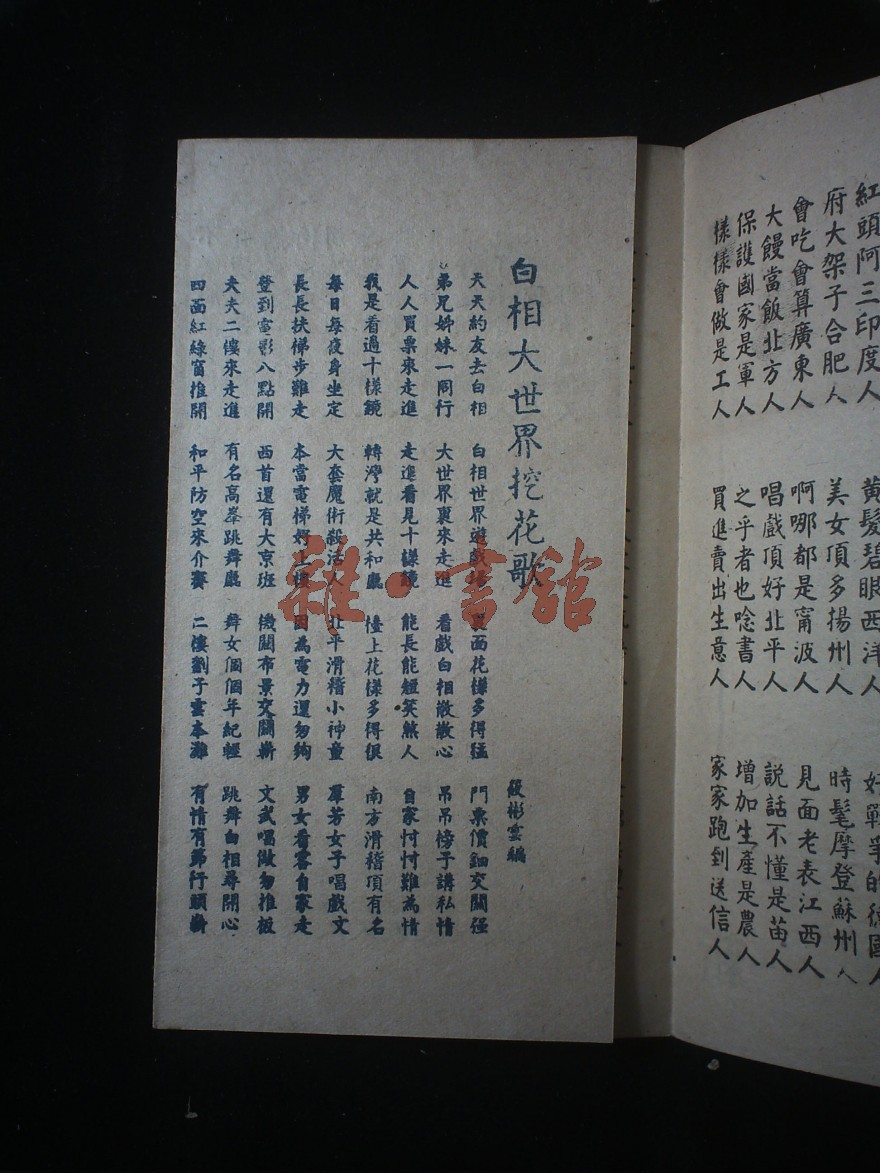 紅頭阿三印度人 黄髮碧眼西洋人 好戰爭的德國人
府大架子合肥人 美女頂多揚州人 時髦摩登蘇州人
會吃會算廣東人 啊哪都是甯波人 見面老表江西人
大饅當飯北方人 唱戲頂好北平人 說話不懂是苗人
保護國家是軍人 之乎者也唸書人 增加生產是農人
樣樣會做是工人 買進賣出生意人 家家跑到送信人
白相大世界挖花歌
筱彬雲編
天天約友去白相 白相世界遊戲場 裏面花樣多得猛 門票價鈿交關强
弟兄姊妹一同行 大世界裏來走進 看戲白相散散心 吊吊榜子講私情
人人買票來走進 走進看見十樣鏡 能長能短笑煞人 自家忖忖難為情
我是看過十樣鏡 轉灣就是共和廳 檯上花樣多得很 南方滑稽頂有名
每日每夜身坐定 大套魔術殺活人 北平滑稽小神童 羣芳女子唱戲文
長長扶梯步難走 本當電梯好上樓 因為電力還勿夠 男女看客自家走
登到電影八點開 西首還有大京班 機關布景交關嶄 文武唱做勿推板
夫夫二樓來走進 有名高峯跳舞廳 舞女個個年紀輕 跳舞白相尋開心
四面紅綠窗推開 和平防空來介賽 二樓劉子雲本灘 有情有節行頭嶄
雜·書館